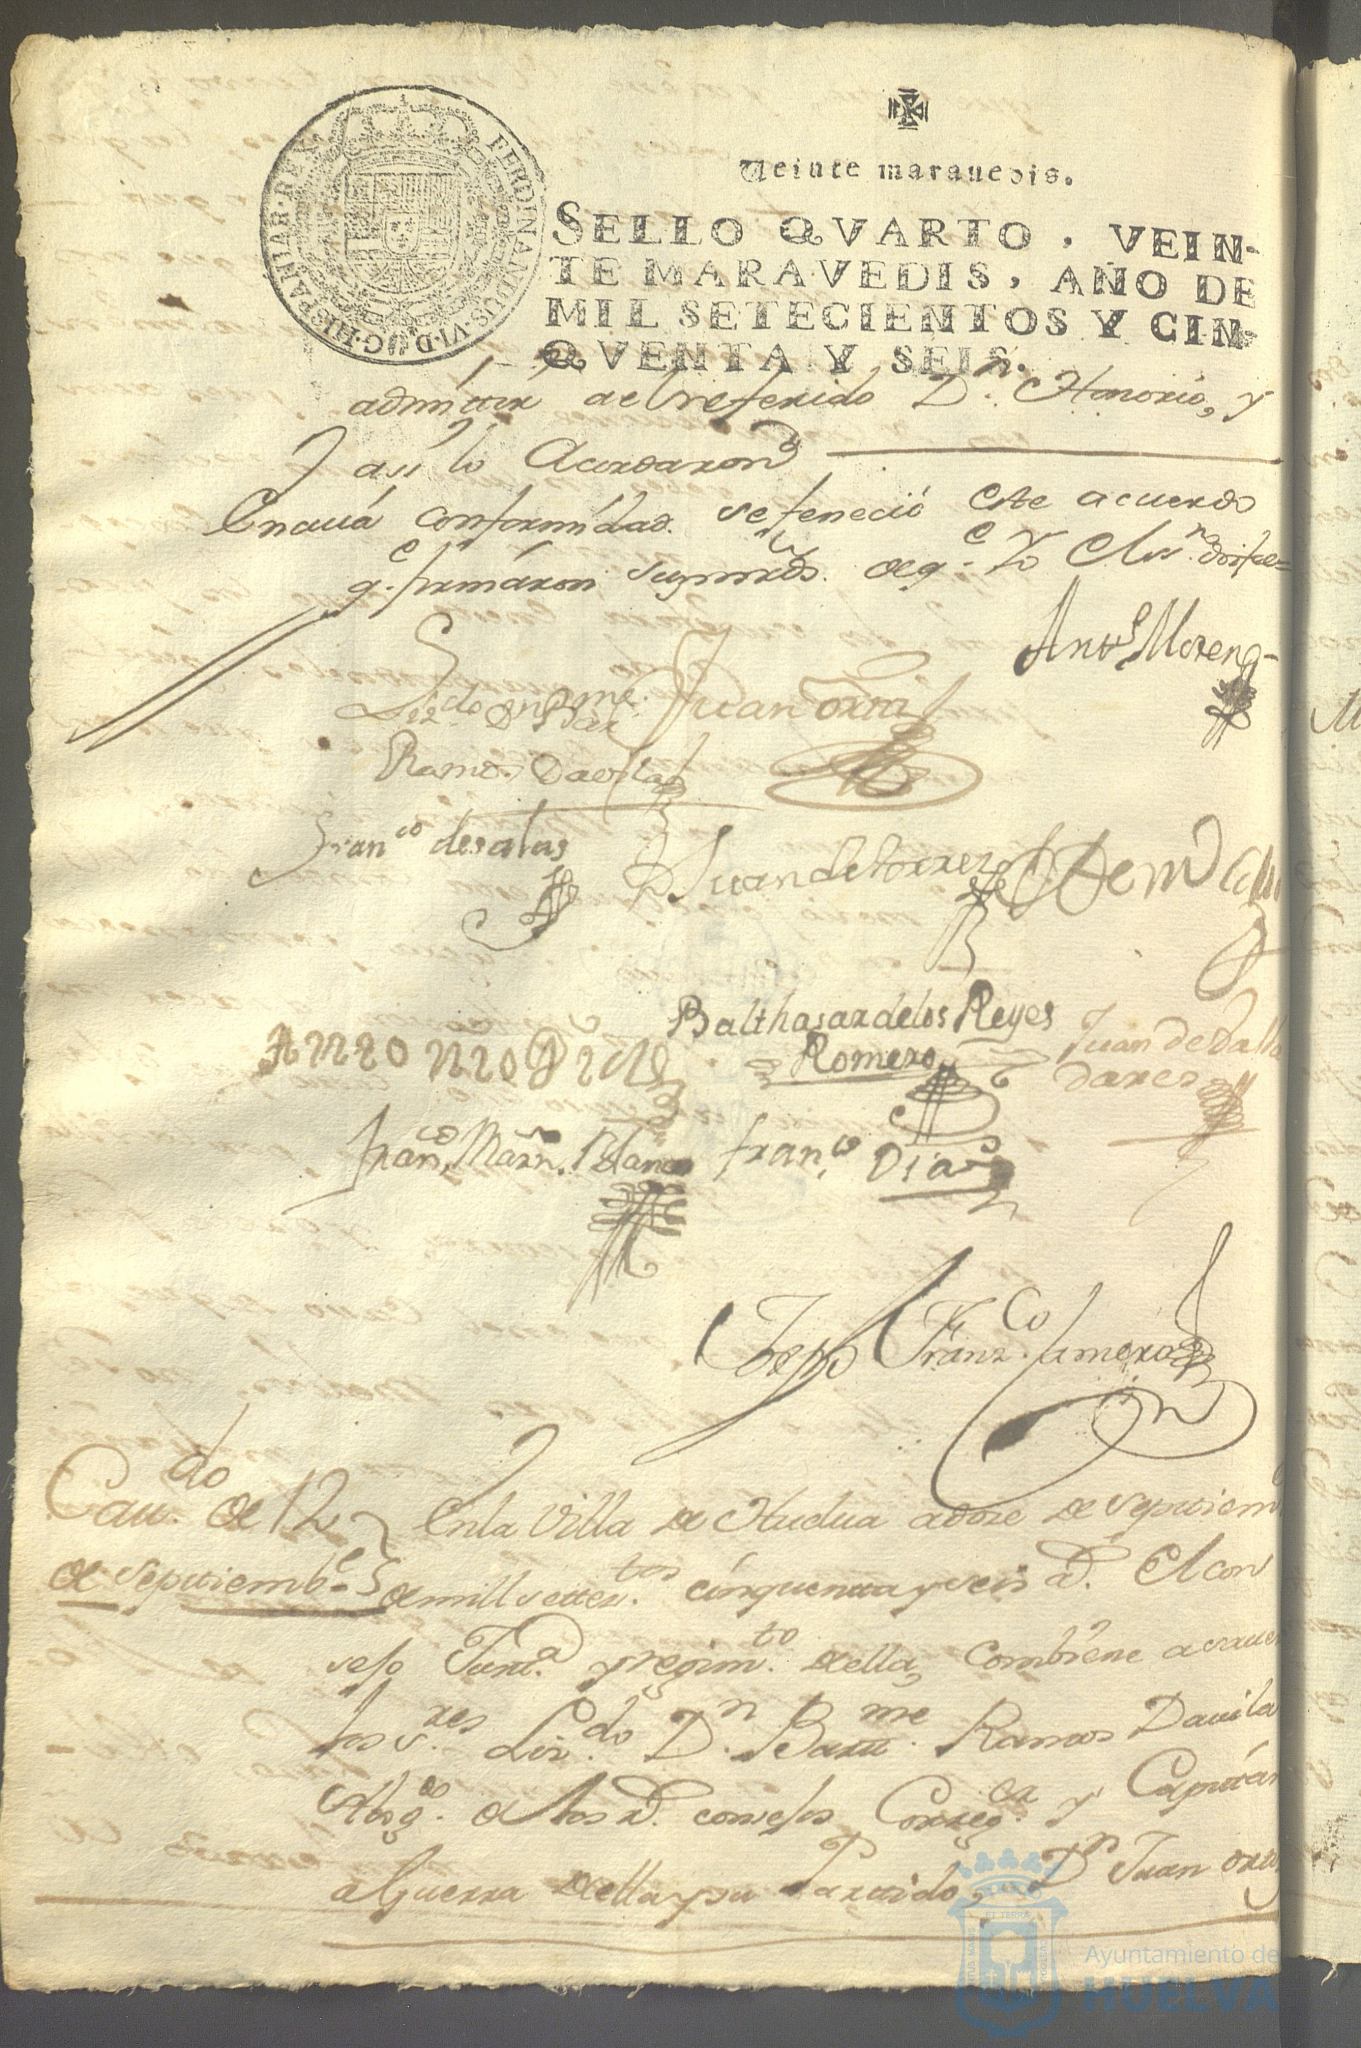 FERDINANDUS·VI·D·G·HISPANIAR·REX
Veinte maravedis.
SELLO QVARTO, VEIN-
TE MARAVEDIS, AÑO DE
MIL SETECIENTOS Y CIN-
QVENTA Y SEIS.
admittir al referido Dn. Honorio, y
asi lo Acordaron
En cuia conformidad se feneció este acuerdo
qe. firmaron sus mrds. de qe. Yo el Essno. doi fee=
Anto. Moreno
Lizdo. Dn. Bme.
Ramos Davila
Juan Orta
Franco de salas
Juan de torres
Balthasar de los Reyes
Romero
Juan de Valla
dares
Antonio Diaz
Franco. Marn. Blanco
franco. Diaz
Joseph Franzco. Romero
Cavdo. de 12
de Septiembe.
En la Villa de Huelva a doze de Septiem
de mill setteztos. cinquenta y seis ad. El con
sejo Justa. y regimto. della, combiene a saver
los Sres. Lizdo. Dn. Barme. Ramos Davila
Abogdo. de los Rs. consejos Corregor. y Capitán
a Guerra della y su Partido, Dn. Juan Orta
Ayuntamiento de
HUELVA